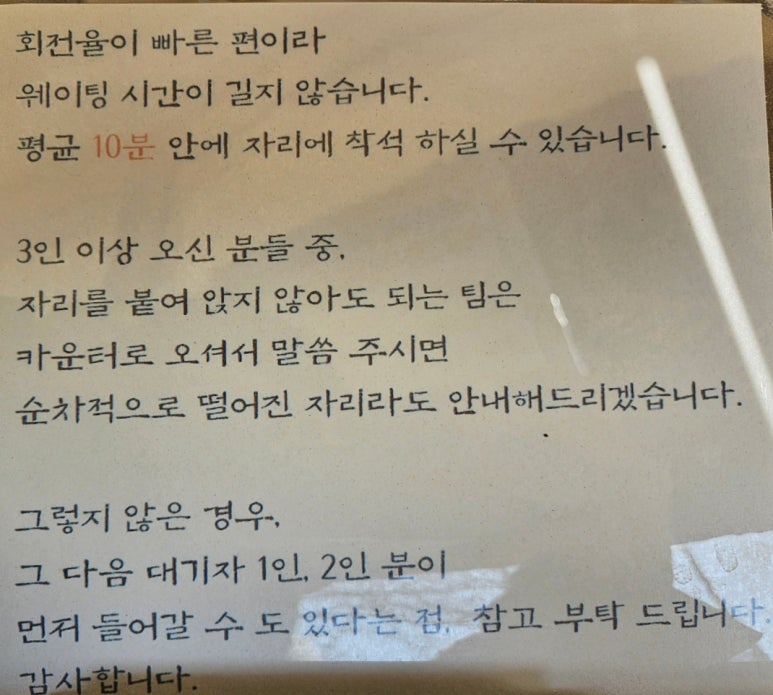 회전율이 빠른 편이라
웨이팅 시간이 길지 않습니다.
평균 10분 안에 자리에 착석 하실 수 있습니다.
3인 이상 오신 분들 중,
자리를 붙여 앉지 않아도 되는 팀은
카운터로 오셔서 말씀 주시면
순차적으로 떨어진 자리라도 안내해드리겠습니다.
그렇지 않은 경우,
그 다음 대기자 1인, 2인 분이
먼저 들어갈 수 도 있다는 점, 참고 부탁 드립니다.
감사합니다.